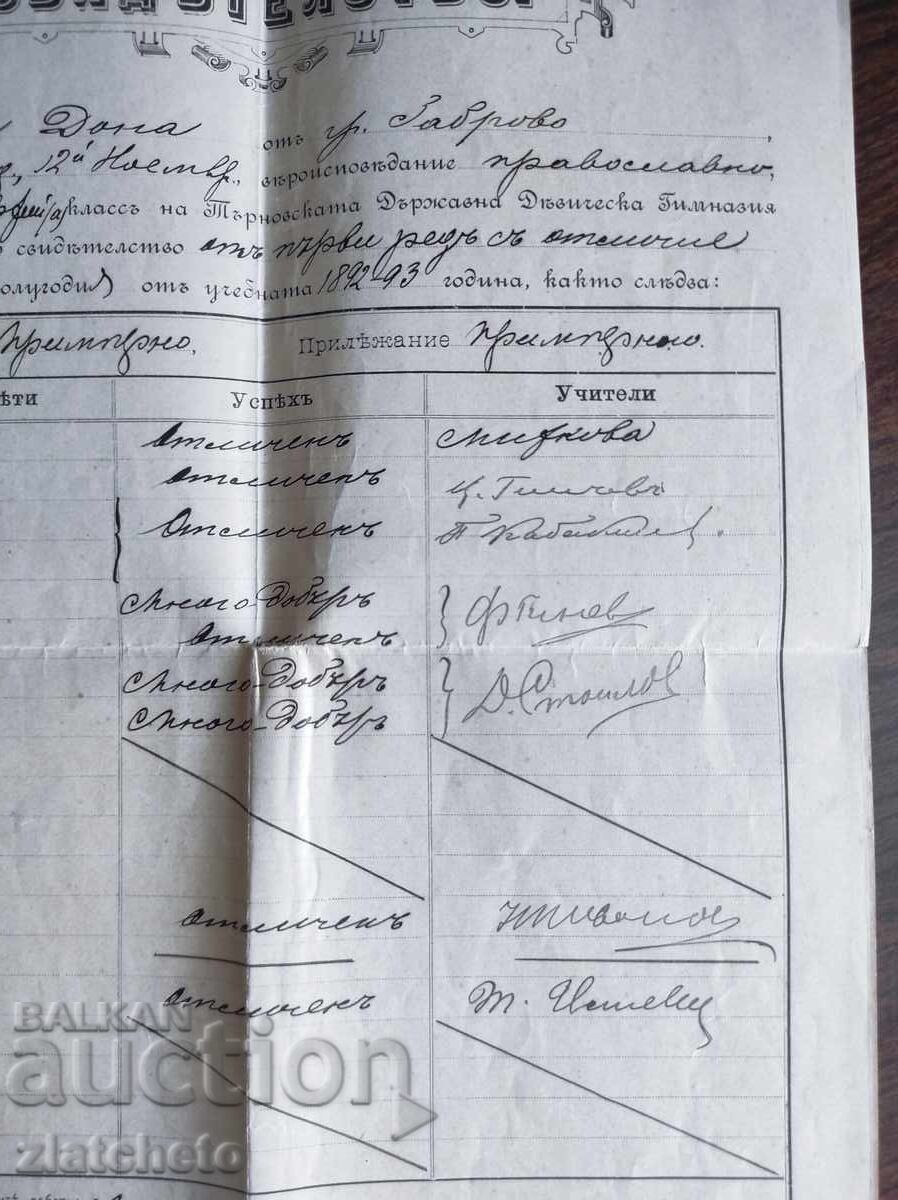 Дона отъ гр. Габрово,
12й Ноемвр., вѣроисповѣдание православно,
классъ на Търновската Държавна Дѣвическа Гимназия
свидѣтелство отъ първи редъ съ отличие
олугодие) отъ учебната 1892-93 година, както слѣдва:
Примѣрно, Прилѣжание Примѣрно.
ѣти Успѣхъ Учители
Отличенъ Миткова
Отличенъ
Отличенъ
Много-добъръ
Отличенъ
Много-добъръ Д. Стоилов
Много-добъръ
Отличенъ
Отличенъ
BALKAN
auction
zlatcheto